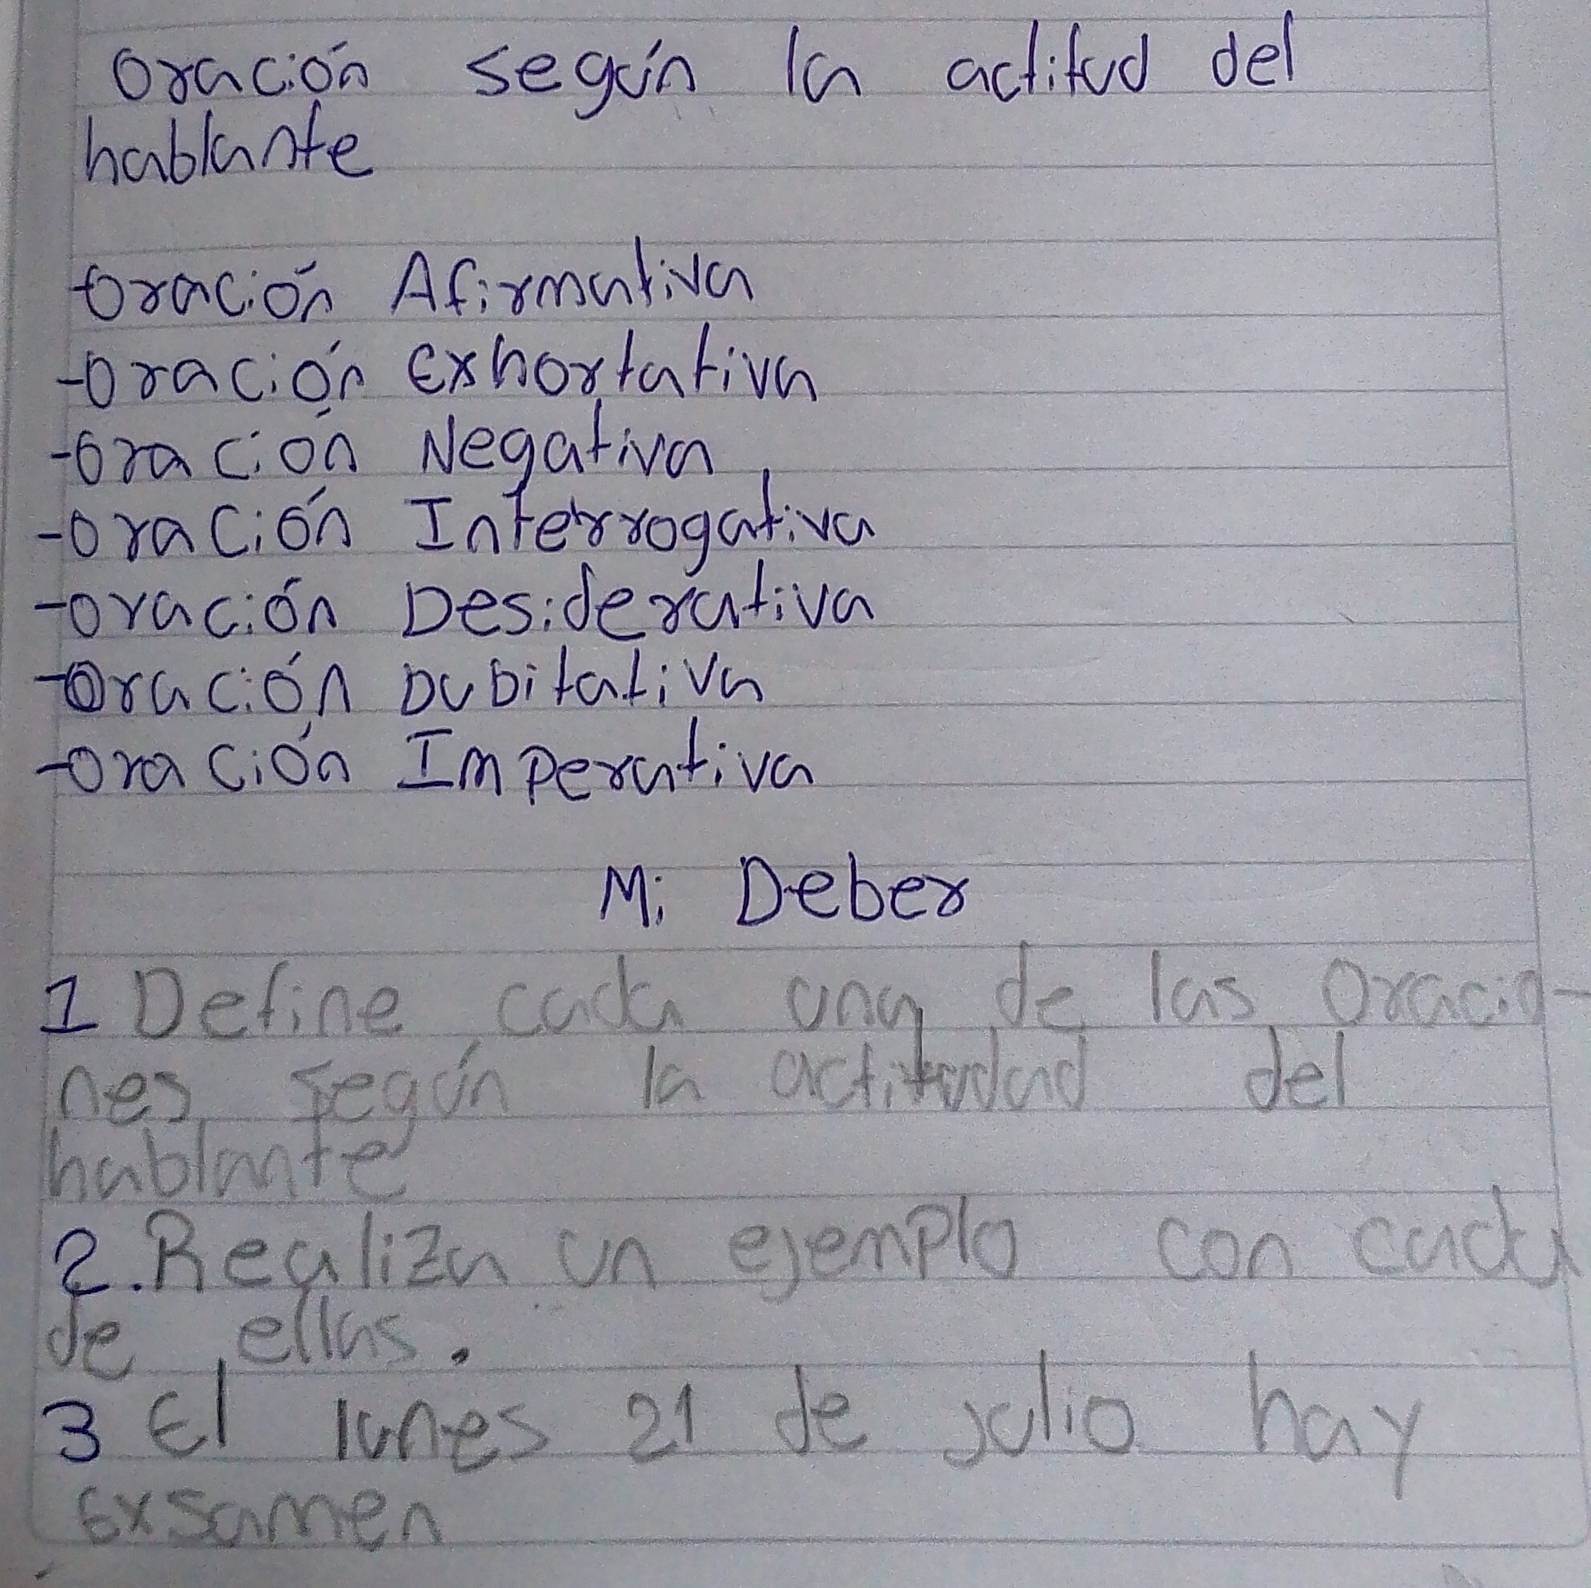 Oración según la actitud del
hablante
-Oración Afirmativa
-Oración Exhortativa
-Oración Negativa
-Oración Interrogativa
-Oración Desiderativa
-Oración Dubitativa
-Oración Imperativa
Mi Deber
1 Define cada una de las Oracio-
nes según la actitudad del
hablante
2. Realiza un ejemplo con cada
de ellas.
3 El lunes 21 de julio hay
exsamen